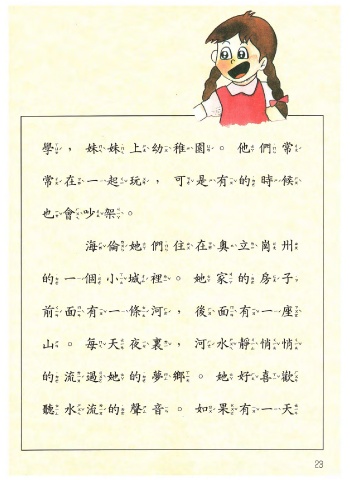 學，妹妹上幼稚園。他們常
常在一起玩，可是有的時候
也會吵架。
海倫她們住在奧立崗州
的一個小城裡。她家的房子
前面有一條河，後面有一座
山。每天夜裏，河水靜悄悄
的流過她的夢鄉。她好喜歡
聽水流的聲音。如果有一天
23